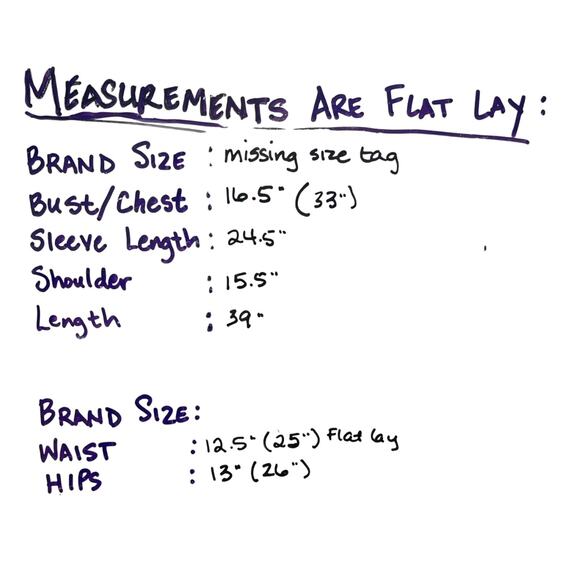 MEASUREMENTS ARE FLAT LAY:
BRAND SIZE : missing size tag
Bust/Chest : 16.5" (33")
Sleeve Length : 24.5"
Shoulder : 15.5"
Length : 39"
BRAND SIZE:
WAIST : 12.5" (25") Flat lay
HIPS : 13" (26")